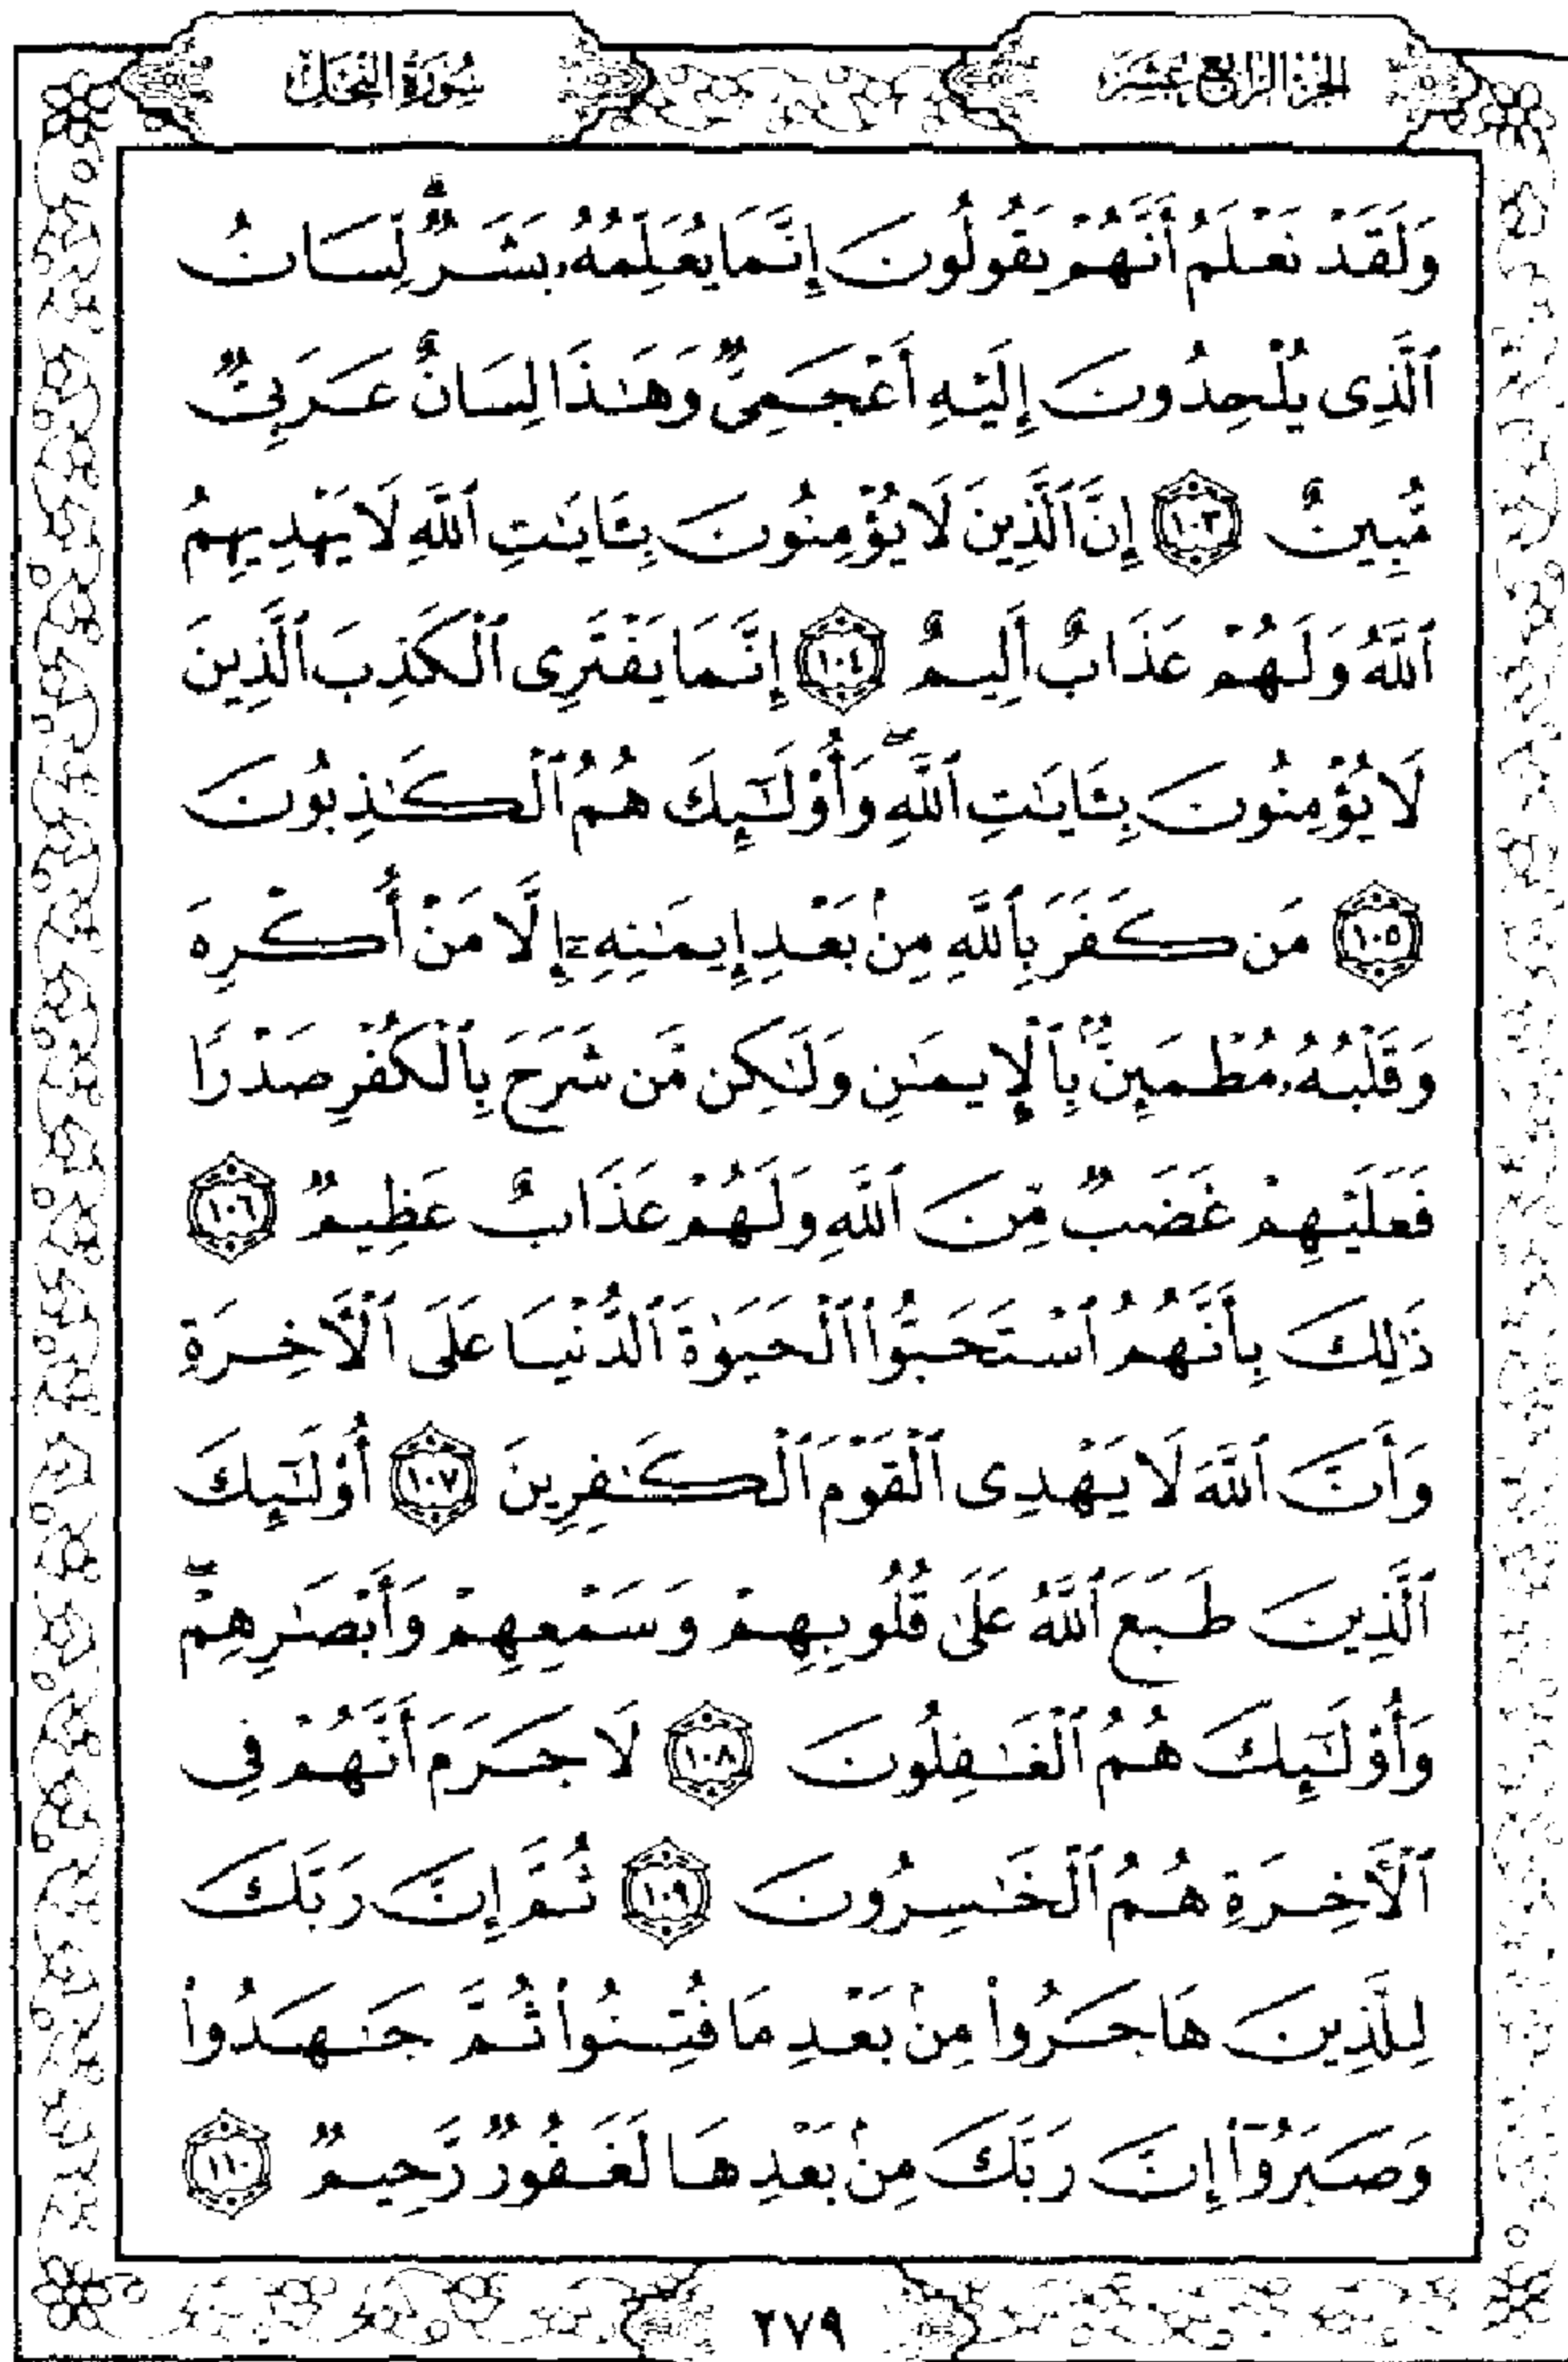 الجزء الرابع عشر
سورة النحل
وَلَقَدْ نَعْلَمُ أَنَّهُمْ يَقُولُونَ إِنَّمَا يُعَلِّمُهُۥ بَشَرٌۗ لِّسَانُ
ٱلَّذِى يُلْحِدُونَ إِلَيْهِ أَعْجَمِىٌّ وَهَـٰذَا لِسَانٌ عَرَبِىٌّ
مُّبِينٌ ١٠٣ إِنَّ ٱلَّذِينَ لَا يُؤْمِنُونَ بِـَٔايَـٰتِ ٱللَّهِ لَا يَهْدِيهِمُ
ٱللَّهُ وَلَهُمْ عَذَابٌ أَلِيمٌ ١٠٤ إِنَّمَا يَفْتَرِى ٱلْكَذِبَ ٱلَّذِينَ
لَا يُؤْمِنُونَ بِـَٔايَـٰتِ ٱللَّهِۖ وَأُو۟لَـٰٓئِكَ هُمُ ٱلْكَـٰذِبُونَ
١٠٥ مَن كَفَرَ بِٱللَّهِ مِنۢ بَعْدِ إِيمَـٰنِهِۦٓ إِلَّا مَنْ أُكْرِهَ
وَقَلْبُهُۥ مُطْمَئِنٌّۢ بِٱلْإِيمَـٰنِ وَلَـٰكِن مَّن شَرَحَ بِٱلْكُفْرِ صَدْرًا
فَعَلَيْهِمْ غَضَبٌ مِّنَ ٱللَّهِ وَلَهُمْ عَذَابٌ عَظِيمٌ ١٠٦
ذَٰلِكَ بِأَنَّهُمُ ٱسْتَحَبُّوا۟ ٱلْحَيَوٰةَ ٱلدُّنْيَا عَلَى ٱلْـَٔاخِرَةِ
وَأَنَّ ٱللَّهَ لَا يَهْدِى ٱلْقَوْمَ ٱلْكَـٰفِرِينَ ١٠٧ أُو۟لَـٰٓئِكَ
ٱلَّذِينَ طَبَعَ ٱللَّهُ عَلَىٰ قُلُوبِهِمْ وَسَمْعِهِمْ وَأَبْصَـٰرِهِمْۖ
وَأُو۟لَـٰٓئِكَ هُمُ ٱلْغَـٰفِلُونَ ١٠٨ لَا جَرَمَ أَنَّهُمْ فِى
ٱلْـَٔاخِرَةِ هُمُ ٱلْخَـٰسِرُونَ ١٠٩ ثُمَّ إِنَّ رَبَّكَ
لِلَّذِينَ هَاجَرُوا۟ مِنۢ بَعْدِ مَا فُتِنُوا۟ ثُمَّ جَـٰهَدُوا۟
وَصَبَرُوٓا۟ إِنَّ رَبَّكَ مِنۢ بَعْدِهَا لَغَفُورٌ رَّحِيمٌ ١١٠
٢٧٩